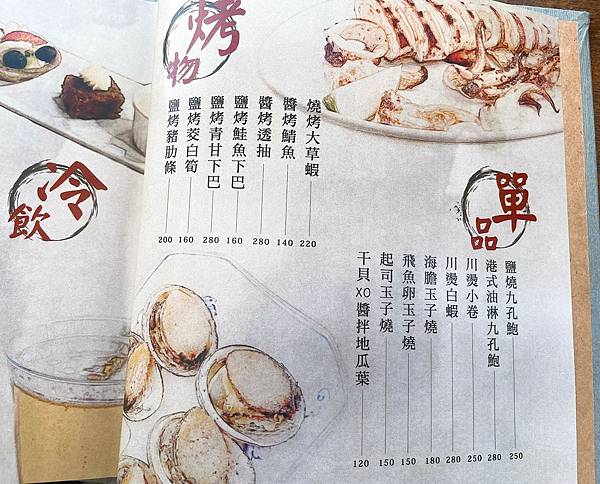 烤物
燒烤大草蝦 220
醬烤鯖魚 140
醬烤透抽 280
鹽烤鮭魚下巴 160
鹽烤青甘下巴 280
鹽烤茭白筍 160
鹽烤豬肋條 200
單品
鹽燒九孔鮑 250
港式油淋九孔鮑 280
川燙小卷 250
川燙白蝦 280
海膽玉子燒 180
飛魚卵玉子燒 150
起司玉子燒 150
干貝XO醬拌地瓜葉 120
冷飲